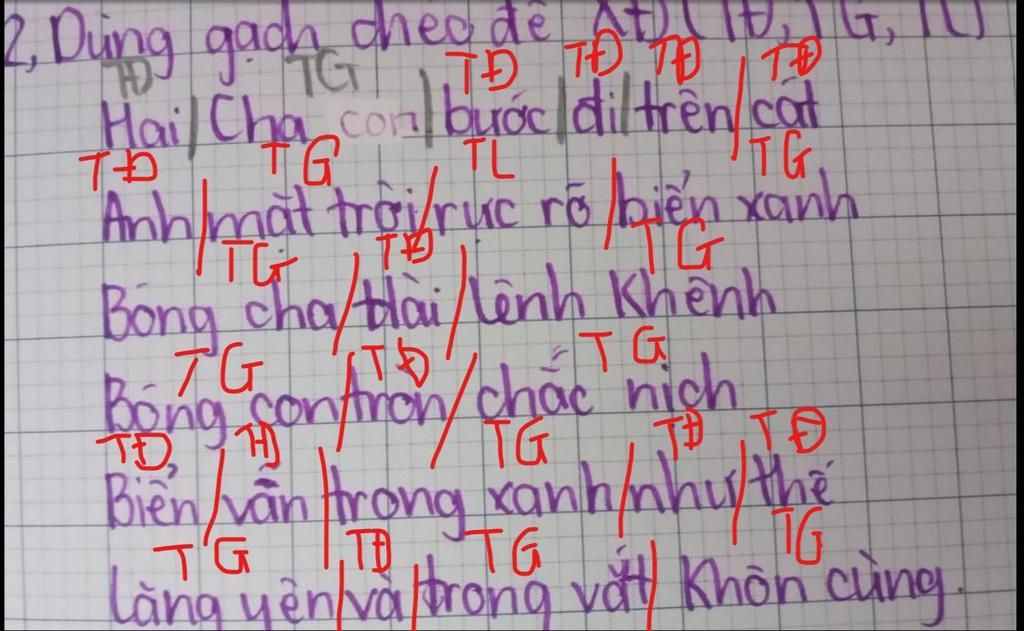 2, Dùng gạch chéo để TĐ, TG, TL
TĐ TG TĐ TĐ TĐ TĐ
Hai/Cha con/bước/đi/trên/cát
TĐ TG TL TG
Ánh/mặt trời/rực rỡ/biển xanh
TG TĐ TG
Bóng cha/dài/lênh Khênh
TG TĐ TG
Bóng con/tròn/chắc nịch
TĐ TĐ TG TĐ TĐ
Biển/vẫn/trong xanh/như/thế
TG TĐ TG TG
Lặng yên/và/trong vắt/Khôn cùng.